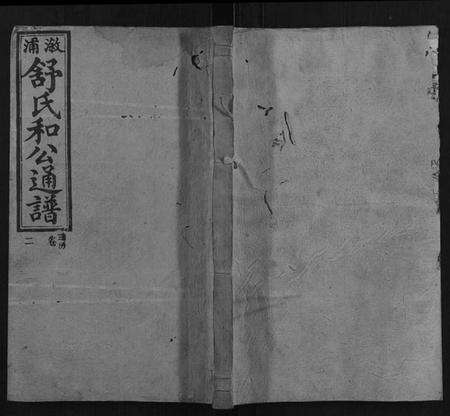 溆浦
舒氏和公通譜
卷二